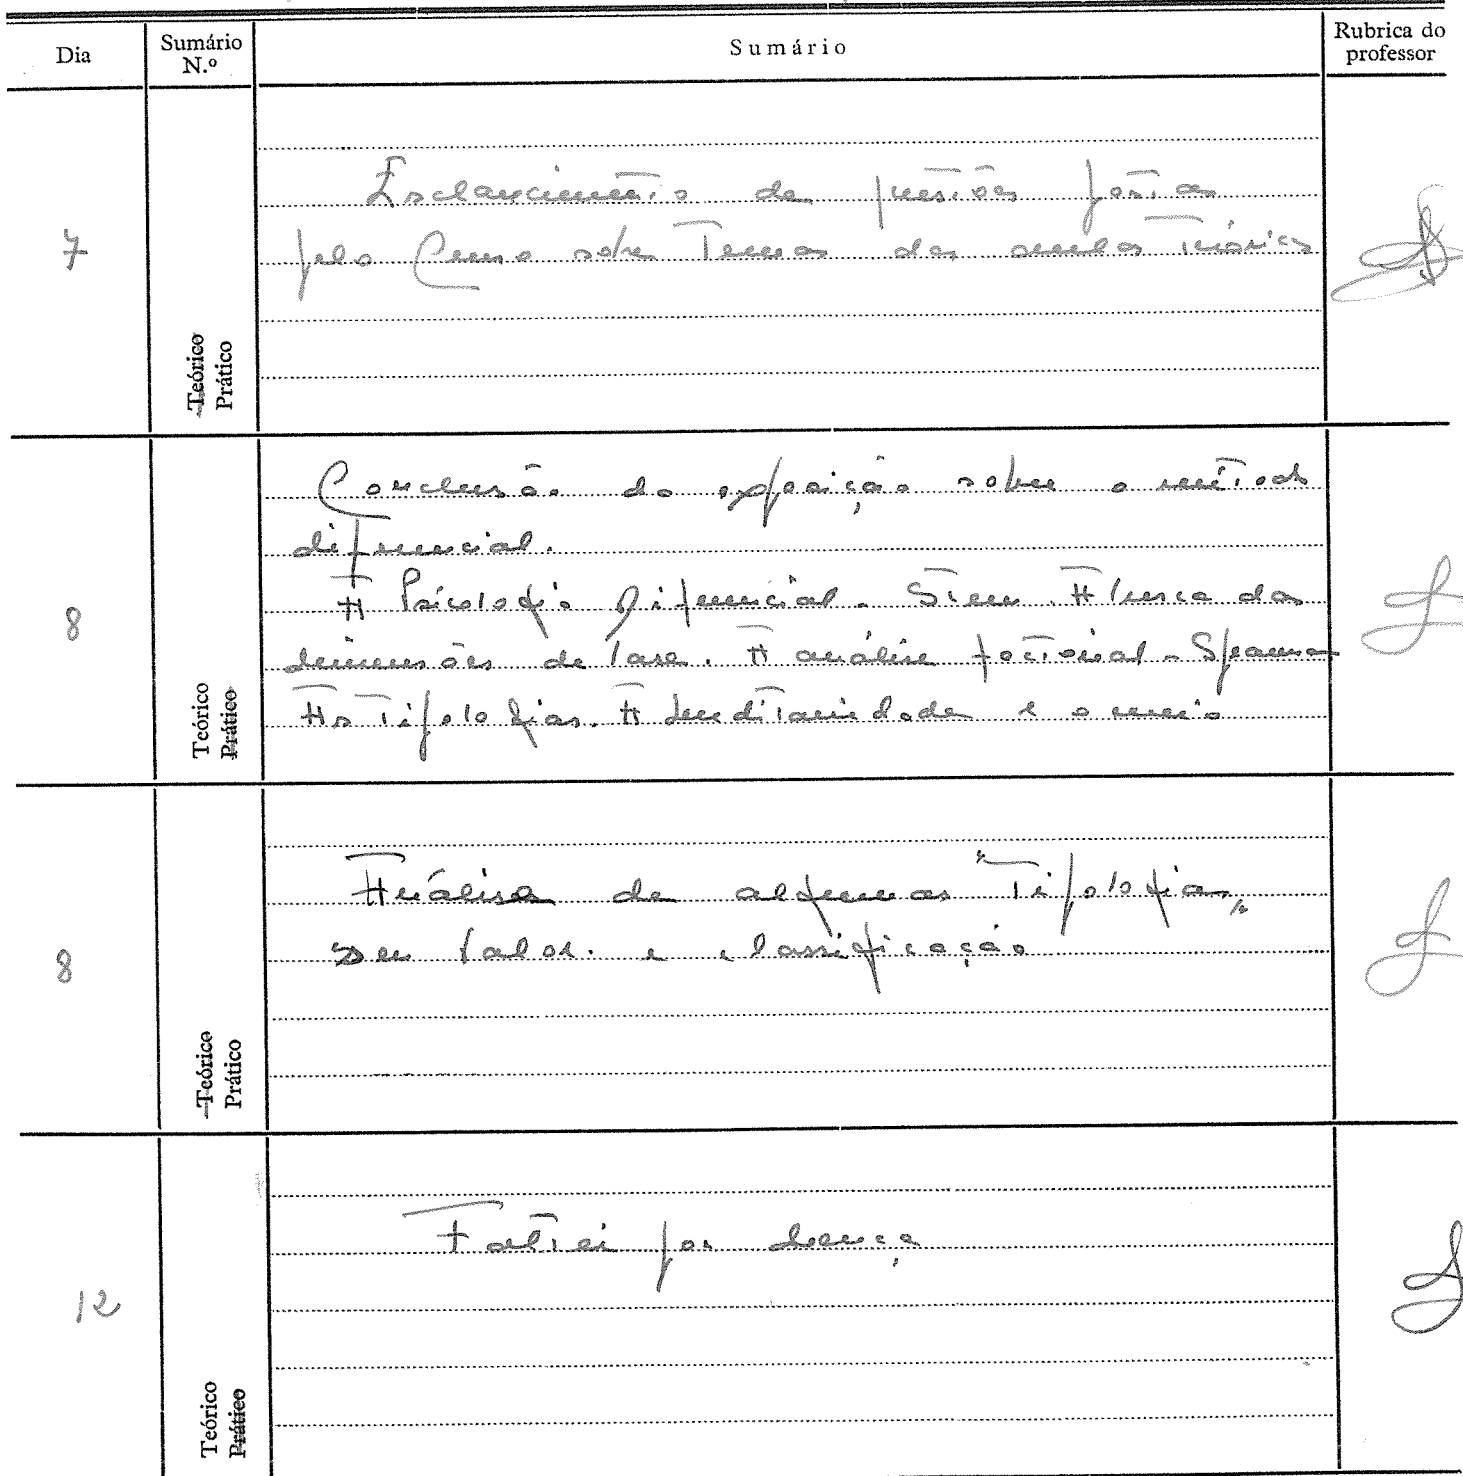 Dia
Sumário N.º
Sumário
Rubrica do professor
7
Teórico
Prático
Esclarecimento de questões postas
pelo Curso sobre Temas das aulas teóricas
8
Teórico
Prático
Conclusão da exposição sobre o método
diferencial.
A Psicologia Diferencial. Stern. A busca das
dimensões de base. A análise factorial - Spearman
As Tipologias. A hereditariedade e o meio
8
Teórico
Prático
Análise de algumas "Tipologias"
seu valor e classificação
12
Teórico
Prático
Faltei por doença